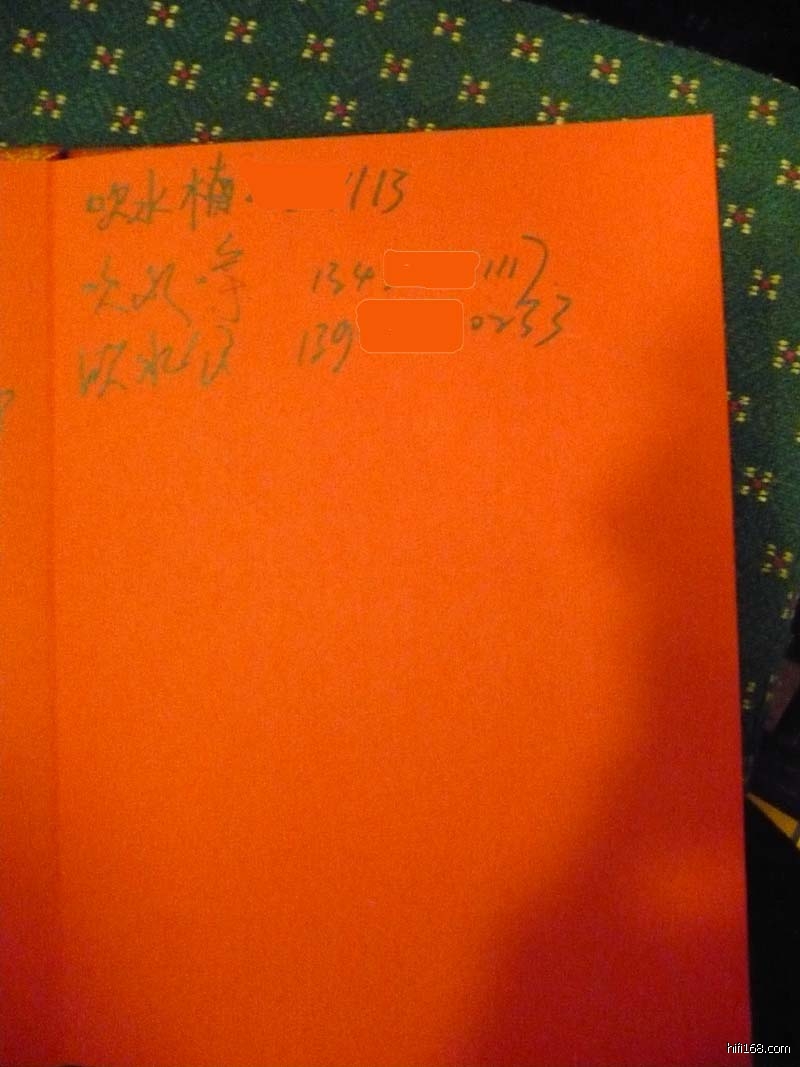 吹水楠 1113
吹水 134 1117
吹水 139 0233
hifi168.com